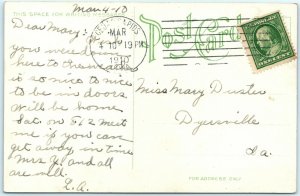 Mar 4-10
THIS SPACE FOR WRITING
Dear Mary:
you were
here to
it so nice to nice
to be in doors
Will be home
Sat on 5.2 Meet
me if you can
get away, in time
Mrs. and all
are well.
L.A.
RAPIDS
MAR
4
PM
1910
Post Card
Miss Mary Duster
Dyersville
Ia.
FOR ADDRESS ONLY